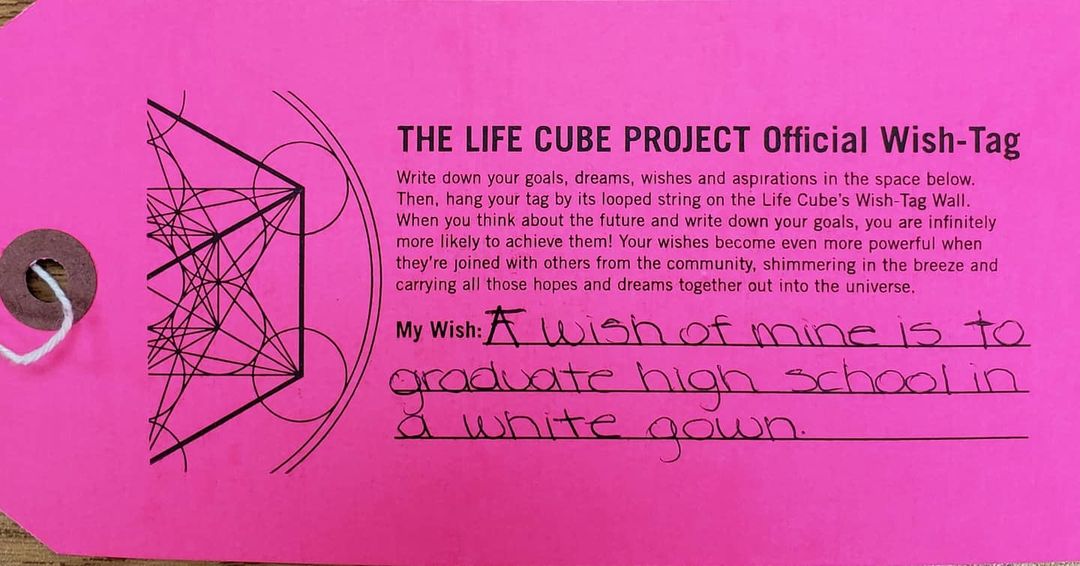 THE LIFE CUBE PROJECT Official Wish-Tag
Write down your goals, dreams, wishes and aspirations in the space below.
Then, hang your tag by its looped string on the Life Cube's Wish-Tag Wall.
When you think about the future and write down your goals, you are infinitely
more likely to achieve them! Your wishes become even more powerful when
they're joined with others from the community, shimmering in the breeze and
carrying all those hopes and dreams together out into the universe.
My Wish: A wish of mine is to
graduate high school in
a white gown.